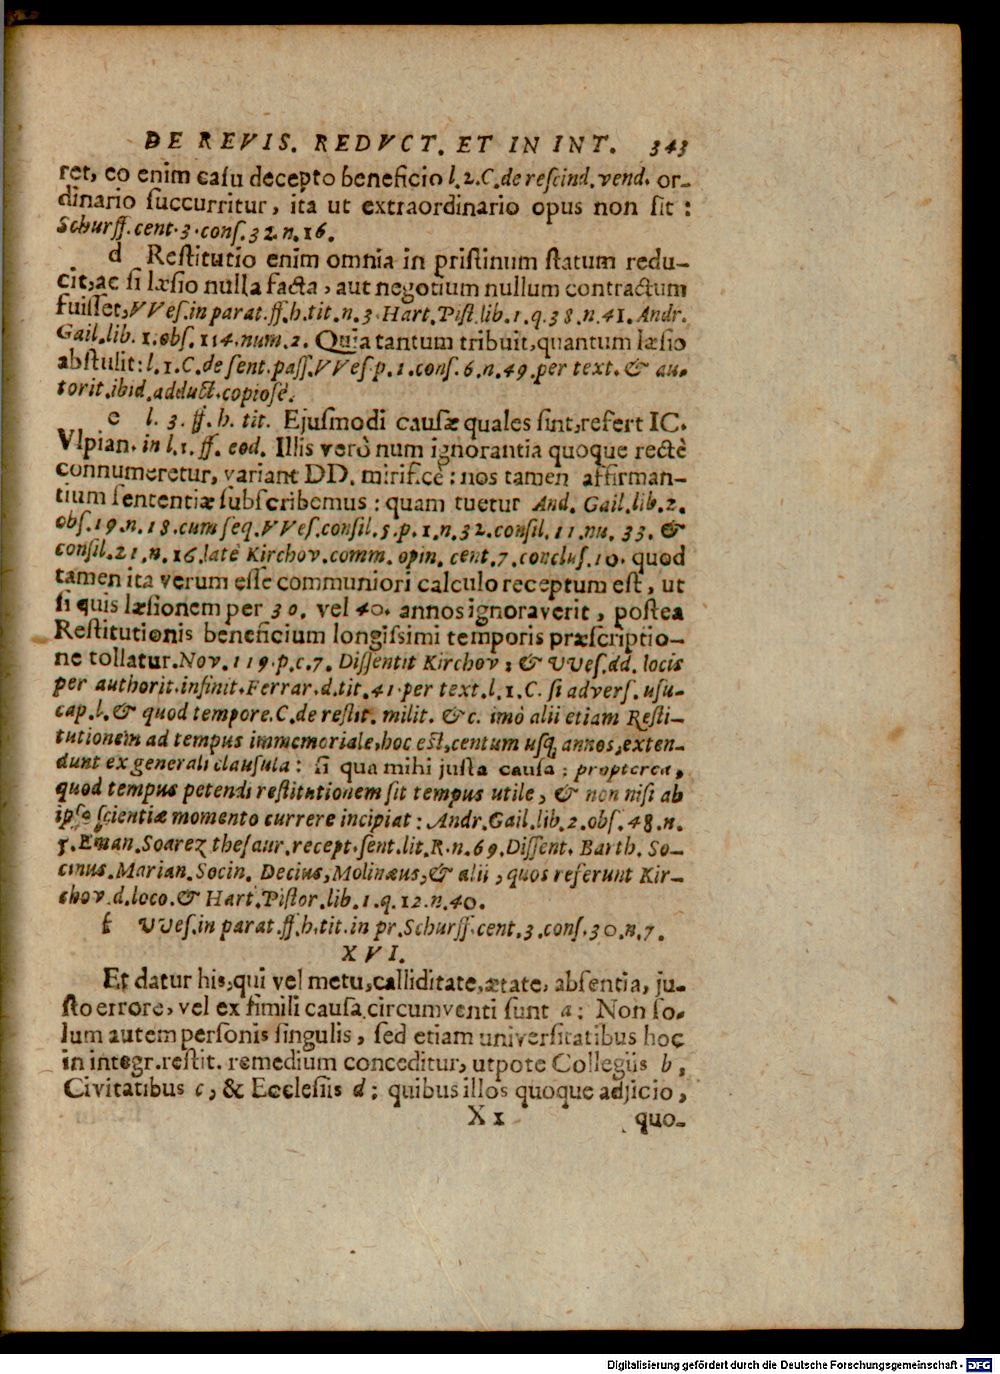 DE REVIS. REDVCT. ET IN INT. 343
ret, eo enim casu decepto beneficio l. 2. C. de rescind. vend. or-
dinario succurritur, ita ut extraordinario opus non sit:
Schurff. cent. 3. cons. 32. n. 16.
d Restitutio enim omnia in pristinum statum redu-
cit, ac si læsio nulla facta, aut negotium nullum contractum
fuisset, VVes. in parat. ff. h. tit. n. 3. Hart. Pist. lib. 1. q. 38. n. 41. Andr.
Gail. lib. 1. obs. 114. num. 2. Quia tantum tribuit, quantum læsio
abstulit: l. 1. C. de sent. pass. VVes. p. 1. cons. 6. n. 49. per text. & au-
torit. ibid. adduct. copiosè.
e l. 3. ff. h. tit. Ejusmodi causæ quales sint, refert IC.
Vlpian. in l. 1. ff. eod. Illis verò num ignorantia quoque rectè
connumeretur, variant DD. mirificè: nos tamen affirman-
tium sententiæ subscribemus: quam tuetur And. Gail. lib. 2.
obs. 19. n. 18. cum seq. VVes. consil. 5. p. 1. n. 32. consil. 11. nu. 33. &
consil. 21. n. 16. latè Kirchov. comm. opin. cent. 7. conclus. 10. quod
tamen ita verum esse communiori calculo receptum est, ut
si quis læsionem per 30. vel 40. annos ignoraverit, postea
Restitutionis beneficium longissimi temporis præscriptio-
ne tollatur. Nov. 119. p. c. 7. Dissentit Kirchov: & VVes. dd. locis
per authorit. infinit. Ferrar. d. tit. 41. per text. l. 1. C. si advers. usu-
cap. l. & quod tempore. C. de restit. milit. &c. imò alii etiam Resti-
tutionem ad tempus immemoriale, hoc est, centum usq; annos, exten-
dunt ex generali clausula: si qua mihi justa causa: propterea,
quod tempus petendi restitutionem sit tempus utile, & non nisi ab
ipso scientiæ momento currere incipiat: Andr. Gail. lib. 2. obs. 48. n.
5. Eman. Soarez thesaur. recept. sent. lit. R. n. 69. Dissent. Barth. So-
cinus. Marian. Socin. Decius, Molinæus, & alii, quos referunt Kir-
chov. d. loco. & Hart. Pistor. lib. 1. q. 12. n. 40.
f VVes. in parat. ff. h. tit. in pr. Schurff. cent. 3. cons. 30. n. 7.
XVI.
Et datur his, qui vel metu, calliditate, ætate, absentia, ju-
sto errore, vel ex simili causa circumventi sunt a: Non so-
lum autem personis singulis, sed etiam universitatibus hoc
in integr. restit. remedium conceditur, utpote Collegiis b,
Civitatibus c, & Ecclesiis d: quibus illos quoque adjicio,
X 1 quo-
Digitalisierung gefördert durch die Deutsche Forschungsgemeinschaft - DFG